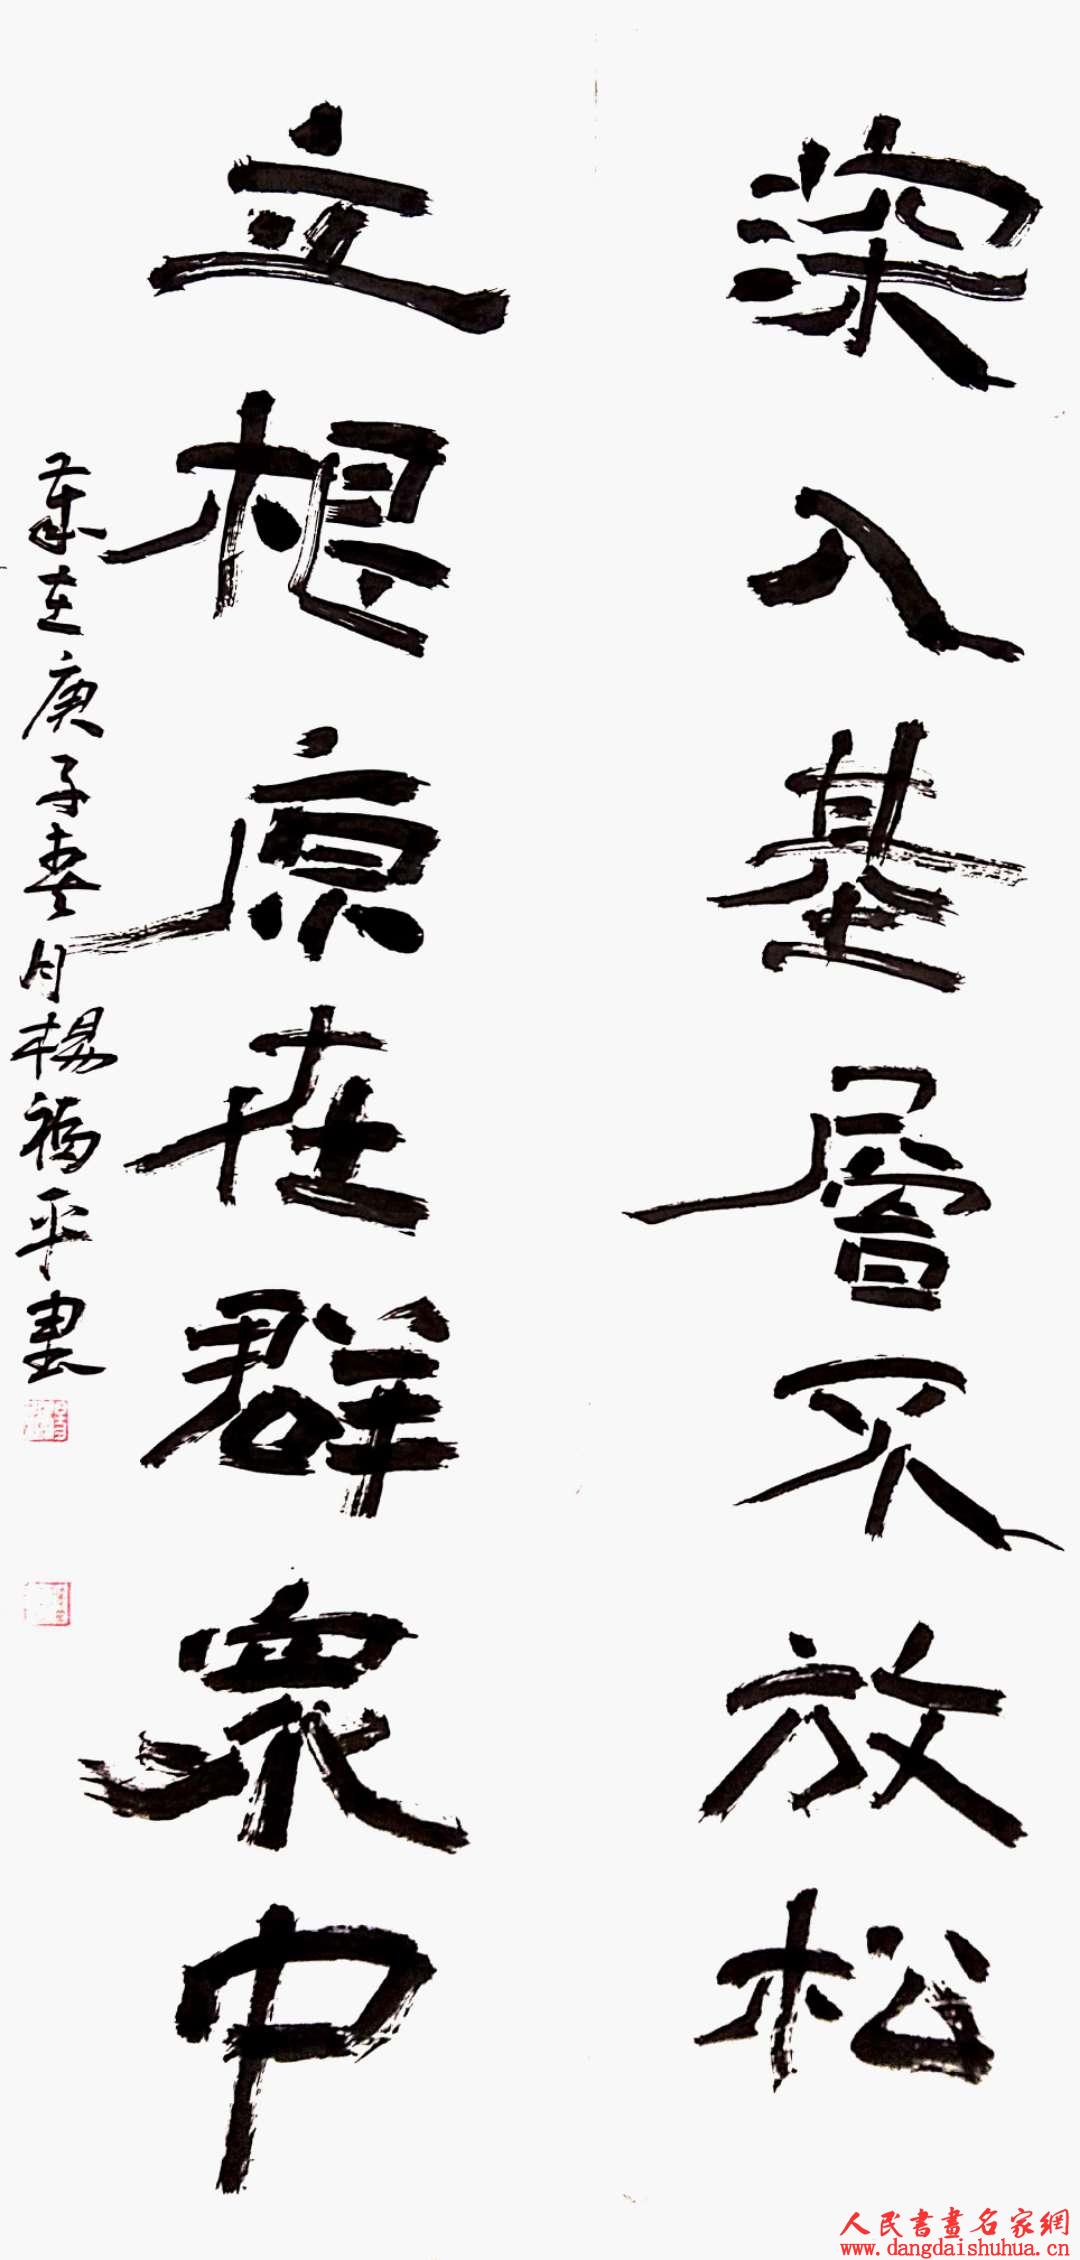 深入基層不放松
立根原在群衆中
歲在庚子春月楊福平書
人民書畫名家網
www.dangdaishuhua.cn